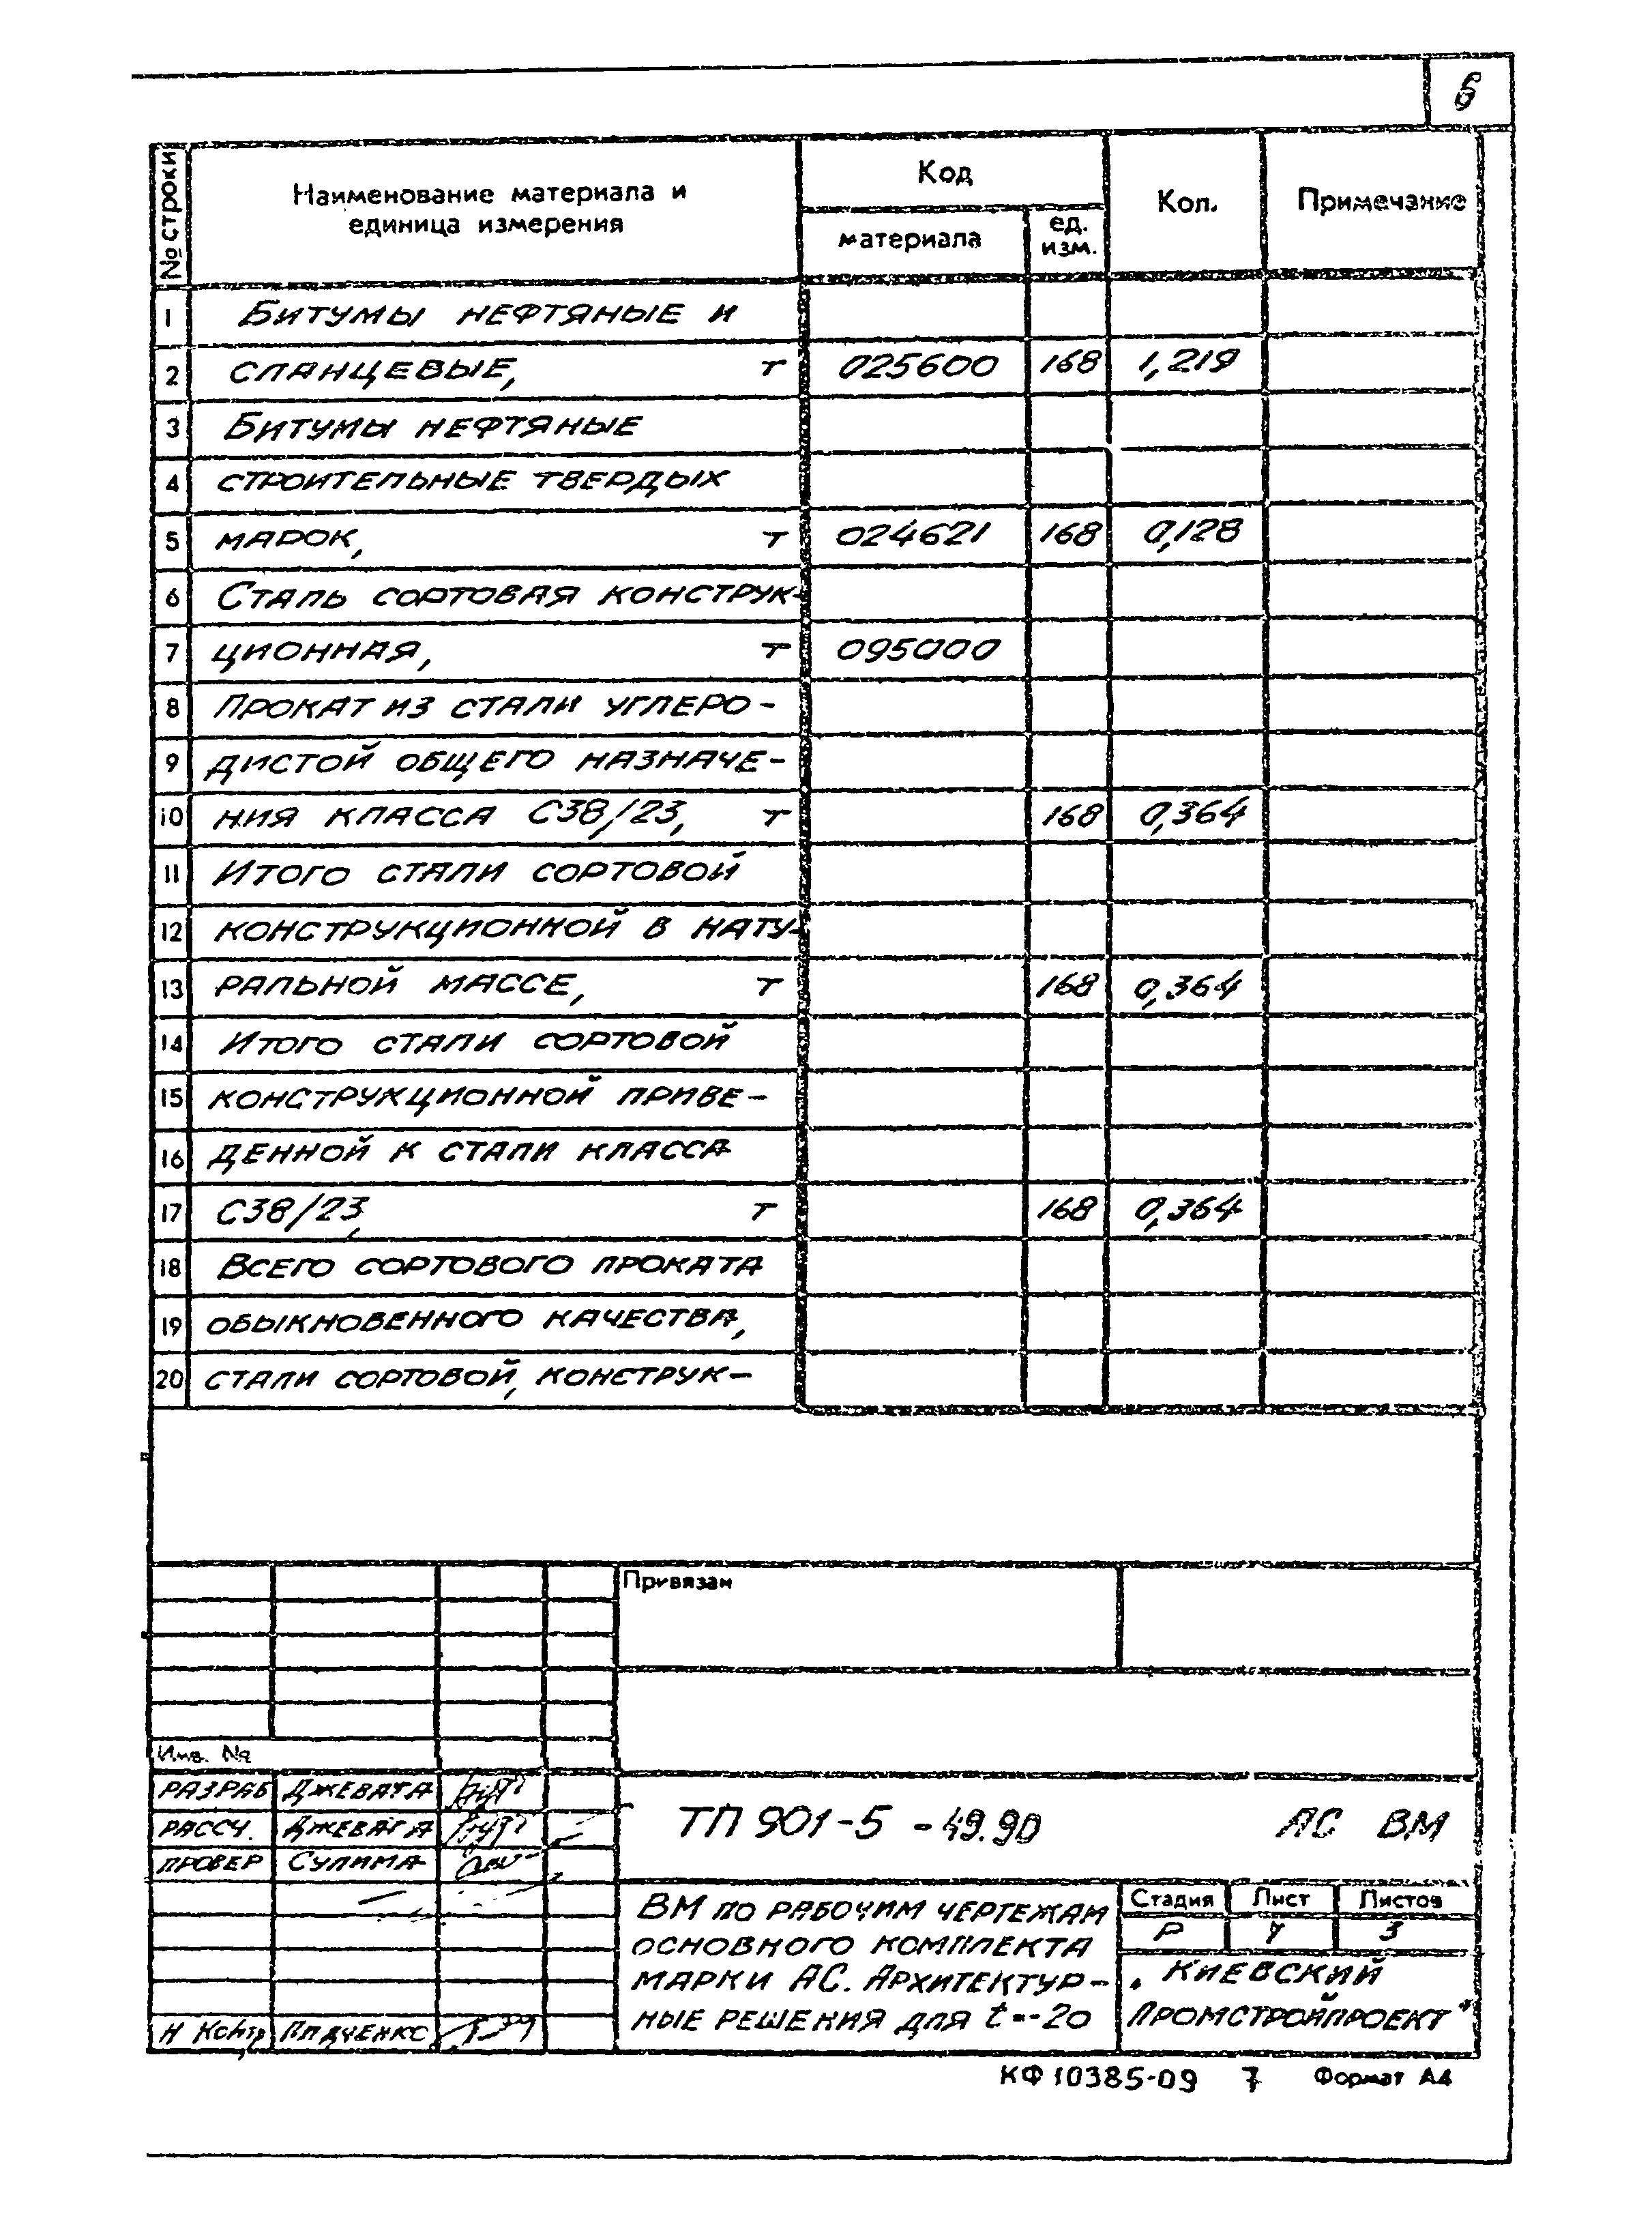 6
№ строки
Наименование материала и единица измерения
Код
материала
ед. изм.
Кол.
Примечание
1 Битумы нефтяные и
2 сланцевые, т 025600 168 1,219
3 Битумы нефтяные
4 строительные твердых
5 марок, т 024621 168 0,128
6 Сталь сортовая конструк-
7 ционная, т 095000
8 Прокат из стали углеро-
9 дистой общего назначе-
10 ния класса С38/23, т 168 0,364
11 Итого стали сортовой
12 конструкционной в нату-
13 ральной массе, т 168 0,364
14 Итого стали сортовой
15 конструкционной приве-
16 денной к стали класса
17 С38/23, т 168 0,364
18 Всего сортового проката
19 обыкновенного качества,
20 стали сортовой, конструк-
Привязан
Инв. №
Разраб Джевага
Рассч. Джевага
Провер Сулима
Н Контр
ТП 901-5-49.90 АС ВМ
ВМ по рабочим чертежам
основного комплекта
марки АС. Архитектур-
ные решения для t=-20
Стадия Лист Листов
Р 3
„Киевский
Промстройпроект"
КФ 10385-09 7 Формат А4